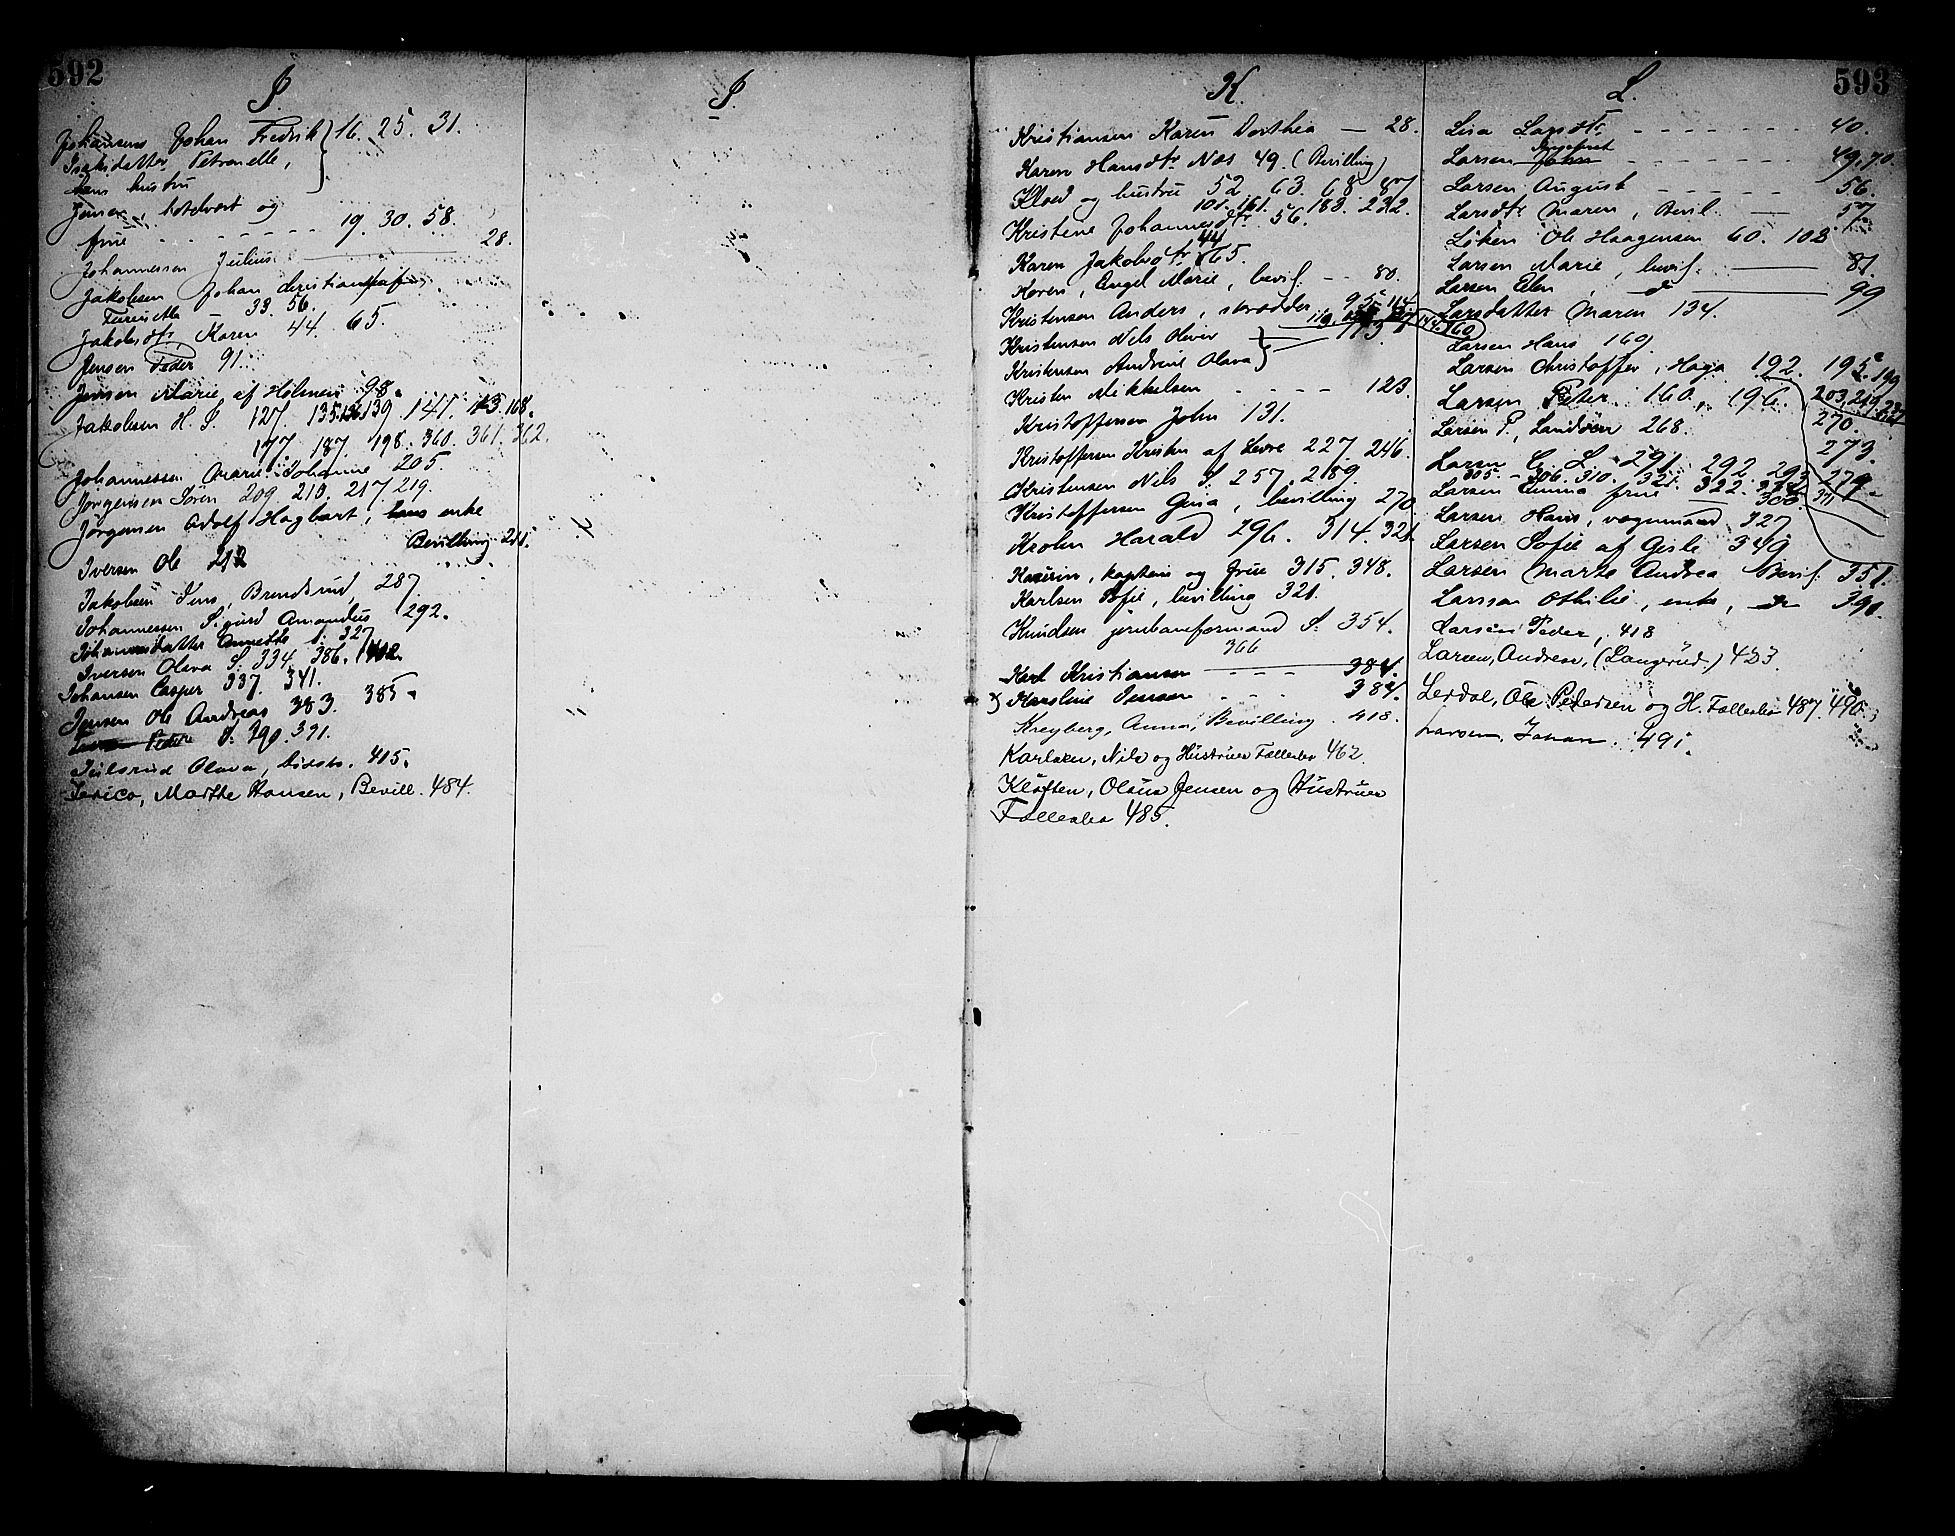 592
J.
Johansens Johan Fredrik 16. 25. 31.
Isaksdatter Petronelle,
hans hustru
Jensen, hotelvært og
frue - - - - - - 19. 30. 58.
Johannessen Julius 28.
Jakobsen Johan Christian
33. 56.
Jakobsdtr, Karen 44. 65.
Jensen Peder 91.
Jensen Marie af Holmen 98.
Jakobsen H. J. 127. 135. 136. 139. 141. 168.
177 187 198. 360. 361. 362.
Johannessen Marie Johanne 205.
Jörgensen Sören 209. 210. 217. 219.
Jörgensen Adolf Hagbart, hans enke
Bevilling
Iversen Ole 212
Jakobsen Jens, Brendsrud, 287
Johannessen Sigurd Amandus 292.
Johannesdatter Annette S. 327
Iversen Olava S. 334. 386. 402.
Johansen Casper 337. 341.
Jensen Ole Andreas 383. 385.
Peder S. 390. 391.
Julsrud Olava, 415.
Jerico, Marthe Hansen, Bevill. 484.
J.
K.
Kristiansen Karen Dorthea — 28.
Karen Hansdtr Næs 49. (Bevilling)
Kloed og hustru 52. 63. 68. 87
101. 161. 183. 232.
Kristine Johannesdtr. 56.
44
Karen Jakobsdtr 65.
Koren, Engel Marie, bevil. - - 80.
Kristensen Anders, skrædder 95. 114
Kristensen Nils Oliver 113
Kristensen Andrine Olava
Kristen Mikkelsen - - - - 123.
Kristoffersen John 131.
Kristoffersen Kristen af Sevre 227. 246.
Kristensen Nils S. 257. 289.
Kristoffersen Gina, bevilling 270
Krohn Harald 296. 314. 321.
kaptein og frue 315. 348.
Karlsen Sofie, bevilling 321.
Knudsen jernbaneformand S. 354.
366
Karl Kristiansen - - - 384.
Karoline Jensen - - - 384.
Kreyberg, Anna, Bevilling. 418.
Karlsen, Nils og Hustrues Fællesbo 462.
Kløften, Olaus Jensen og Hustrues
Fællesbo 485.
593
L.
Lisa Larsdtr. - - - - - - 40.
Ingebret
Larsen John - - - - - - 49. 70.
Larsen August - - - - - - 56.
Larsdtr Maren, Bevil. — 57.
Løken Ole Haagensen 60. 102
Larsen Marie, bevil. — 81.
Larsen Elen, do — 99
Larsdatter Maren 134.
160
Larsen Hans 169
Larsen Christoffer, Haga 192. 195. 199
Larsen Peter 160. 196. 203. 219. 237
Larsen P., Sandöen 268. 270.
273.
Larsen C. L. 291. 292. 293. 279.
305. - 306. 310. 321.
Larsen Emma frue 322. 311
Larsen Hans, vognmand 327
Larsen Sofie af Gisle 349
Larsen Marte Andrea Bevil. 351.
Larsson Othilie, enke, do 390.
Larsen Peder, 418
Larsen, Andreas, (Langerud.) 423.
Lerdal, Ole Pedersen og H. Fællesbo 487. 490.
Larsen Johan. 491.